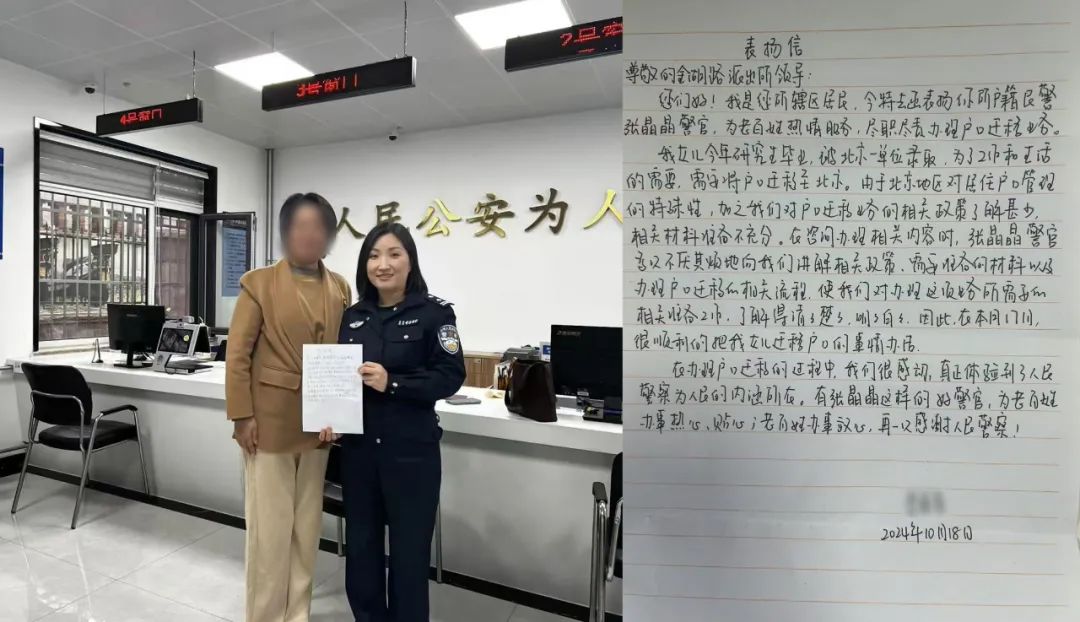 4号窗门
3号窗门
2号窗
人民公安为人
表扬信
尊敬的金湖路派出所领导:
你们好!我是你所辖区居民,今特去函表扬你所户籍民警
张晶晶警官,为老百姓热情服务,尽职尽责办理户口迁移业务。
我女儿今年研究生毕业,被北京一单位录取,为了工作和生活
的需要,需要将户口迁移至北京。由于北京地区对居住户口管理
的特殊性,加之我们对户口迁移业务的相关政策了解甚少,
相关材料准备不充分。在咨询办理相关内容时,张晶晶警官
多次不厌其烦地向我们讲解相关政策、需要准备的材料以及
办理户口迁移的相关流程,使我们对办理这项业务所需要的
相关准备工作,了解得清清楚楚,明明白白。因此,在本月17日,
很顺利的把我女儿迁移户口的事情办法.
在办理户口迁移的过程中,我们很感动,真正体验到了人民
警察为人民的内涵所在。有张晶晶这样的好警官,为老百姓
办事热心、贴心;老百姓办事放心,再一次感谢人民警察!
2024年10月18日